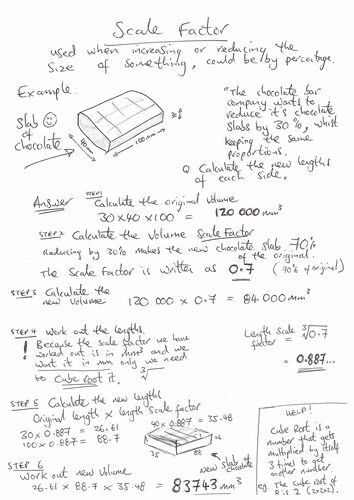 Scale Factor
used when increasing or reducing the
size of something, could be by percentage.
Example.
Slab
of
chocolate
40mm
100mm
"The chocolate bar
company wants to
reduce it's chocolate
slabs by 30%, whilst
keeping the same
proportions.
Q Calculate the new lengths
of each side."
Answer STEP 1 Calculate the original volume
30 x 40 x 100 = 120 000 mm³
STEP 2 Calculate the Volume Scale Factor
Reducing by 30% makes the new chocolate slab 70%
of the original.
The Scale Factor is written as 0.7 (70% of original)
STEP 3 Calculate the
new volume 120 000 x 0.7 = 84 000 mm³
STEP 4 Work out the lengths.
! Because the scale factor we have
worked out is in mm³ and we
want it in mm only we need
to cube root it. ³√
Length Scale
factor = ³√0.7
= 0.887...
STEP 5 Calculate the new lengths
Original length x Length Scale factor
30 x 0.887 = 26.61
100 x 0.887 = 88.7
40 x 0.887 = 35.48
new slab of
chocolate
STEP 6
Work out new volume
26.61 x 88.7 x 35.48 = 83743 mm³
HELP!
Cube Root is a
number that gets
multiplied by itself
3 times to get
another number.
eg. The cube root of
8 is 2 (2x2x2).